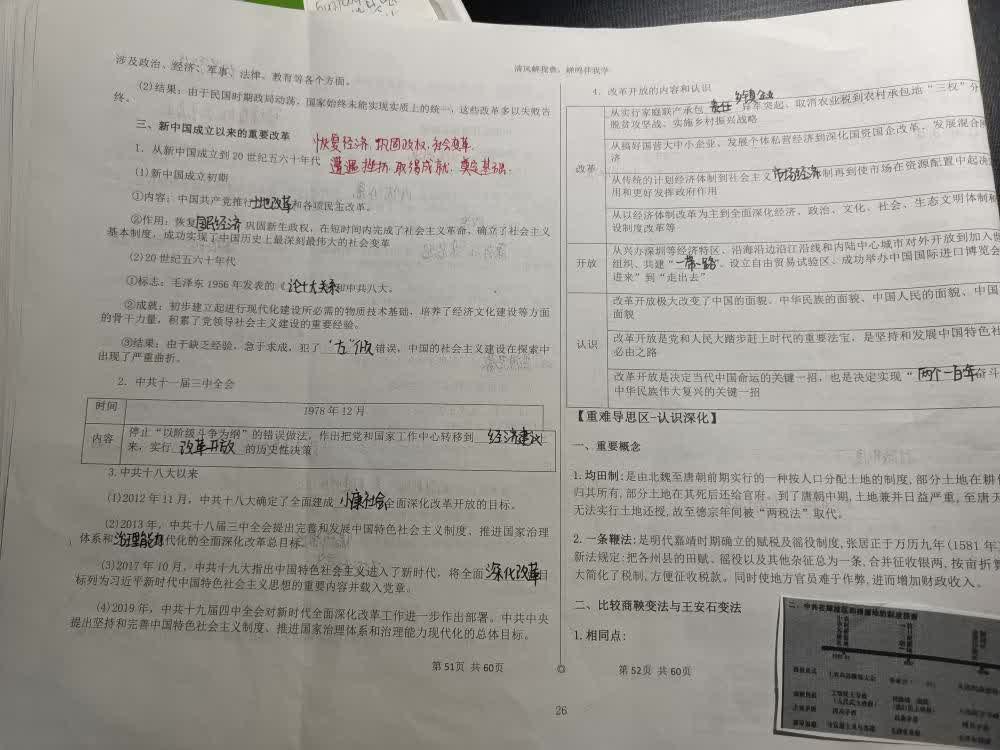 清风解我意，蝉鸣伴我学
涉及政治、经济、军事、法律、教育等各个方面。
(2)结果：由于民国时期政局动荡，国家始终未能实现实质上的统一，这些改革多以失败告
终。
三、新中国成立以来的重要改革
恢复经济 巩固政权 社会变革
1. 从新中国成立到20世纪五六十年代
遭遇挫折 取得成就 奠定基础
(1)新中国成立初期
①内容：中国共产党推行土地改革和各项民主改革。
②作用：恢复国民经济巩固新生政权，在短时间内完成了社会主义革命，确立了社会主义
基本制度，成功实现了中国历史上最深刻最伟大的社会变革
(2)20世纪五六十年代
①标志：毛泽东1956年发表的《论十大关系和中共八大。
②成就：初步建立起进行现代化建设所必需的物质技术基础，培养了经济文化建设等方面
的骨干力量，积累了党领导社会主义建设的重要经验。
③结果：由于缺乏经验，急于求成，犯了"左"倾错误，中国的社会主义建设在探索中
出现了严重曲折。
2. 中共十一届三中全会
时间 1978年12月
内容 停止"以阶级斗争为纲"的错误做法，作出把党和国家工作中心转移到 经济建设
来，实行 改革开放 的历史性决策
3.中共十八大以来
(1)2012年11月，中共十八大确定了全面建成小康社会全面深化改革开放的目标。
(2)2013年，中共十八届三中全会提出完善和发展中国特色社会主义制度、推进国家治理
体系和治理能力代化的全面深化改革总目标
(3)2017年10月，中共十九大指出中国特色社会主义进入了新时代，将全面深化改革目
标列为习近平新时代中国特色社会主义思想的重要内容并载入党章。
(4)2019年，中共十九届四中全会对新时代全面深化改革工作进一步作出部署。中共中央
提出坚持和完善中国特色社会主义制度、推进国家治理体系和治理能力现代化的总体目标。
第51页 共60页
4. 改革开放的内容和认识
改革
从实行家庭联产承包责任 乡镇企业异军突起、取消农业税到农村承包地"三权"分
脱贫攻坚战、实施乡村振兴战略
从搞好国营大中小企业、发展个体私营经济到深化国资国企改革、发展混合所
济
从传统的计划经济体制到社会主义市场经济制再到使市场在资源配置中起决
用和更好发挥政府作用
从以经济体制改革为主到全面深化经济、政治、文化、社会、生态文明体制和
设制度改革等
开放
从兴办深圳等经济特区、沿海沿边沿江沿线和内陆中心城市对外开放到加入世
组织、共建"一带一路"、设立自由贸易试验区、成功举办中国国际进口博览会
进来"到"走出去"
认识
改革开放极大改变了中国的面貌、中华民族的面貌、中国人民的面貌、中国
面貌
改革开放是党和人民大踏步赶上时代的重要法宝，是坚持和发展中国特色社
必由之路
改革开放是决定当代中国命运的关键一招，也是决定实现"两个一百年奋斗
中华民族伟大复兴的关键一招
【重难导思区-认识深化】
一、重要概念
1.均田制：是由北魏至唐朝前期实行的一种按人口分配土地的制度，部分土地在耕
归其所有，部分土地在其死后还给官府。到了唐朝中期，土地兼并日益严重，至唐天
无法实行土地还授，故至德宗年间被"两税法"取代。
2.一条鞭法：是明代嘉靖时期确立的赋税及徭役制度，张居正于万历九年(1581年
新法规定：把各州县的田赋、徭役以及其他杂征总为一条，合并征收银两，按亩折算
大简化了税制，方便征收税款。同时使地方官员难于作弊，进而增加财政收入。
二、比较商鞅变法与王安石变法
1.相同点：
第52页 共60页
26